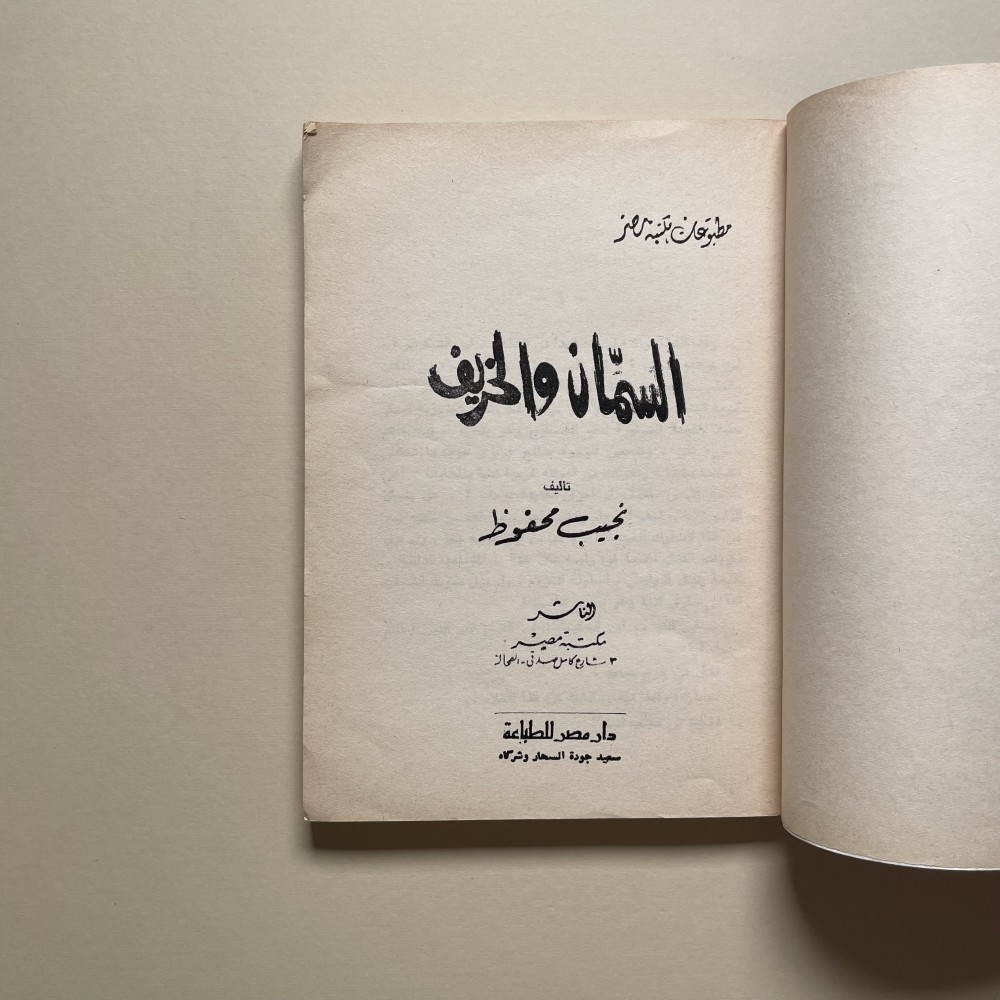 مطبوعات مكتبة مصر
السمّان والخريف
تأليف
نجيب محفوظ
الناشر
مكتبة مصر
٣ شارع كامل صدقى - الفجالة
دار مصر للطباعة
سعيد جودة السحار وشركاه